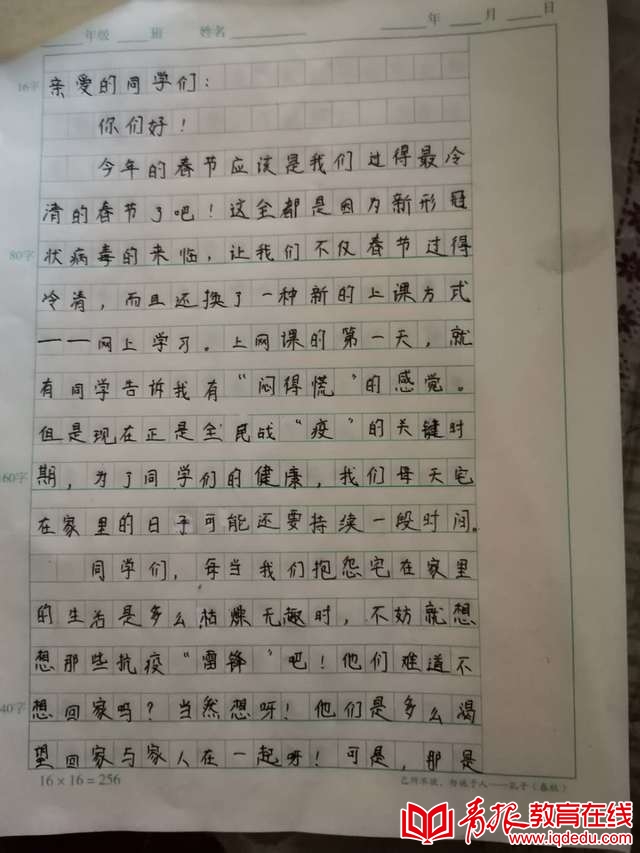 年级 班 姓名 年 月 日
16字
亲爱的同学们：
你们好！
今年的春节应该是我们过得最冷
清的春节了吧！这全都是因为新形冠
80字
状病毒的来临，让我们不仅春节过得
冷清，而且还换了一种新的上课方式
——网上学习。上网课的第一天，就
有同学告诉我有“闷得慌”的感觉。
但是现在正是全民战“疫”的关键时
60字
期，为了同学们的健康，我们每天宅
在家里的日子可能还要持续一段时间。
同学们，每当我们抱怨宅在家里
的生活是多么枯燥无趣时，不妨就想
想那些抗疫“雷锋”吧！他们难道不
40字
想回家吗？当然想呀！他们是多么渴
望回家与家人在一起呀！可是，那是
16×16=256
己所不欲，勿施于人——孔子（春秋）
青报教育在线
www.iqdedu.com